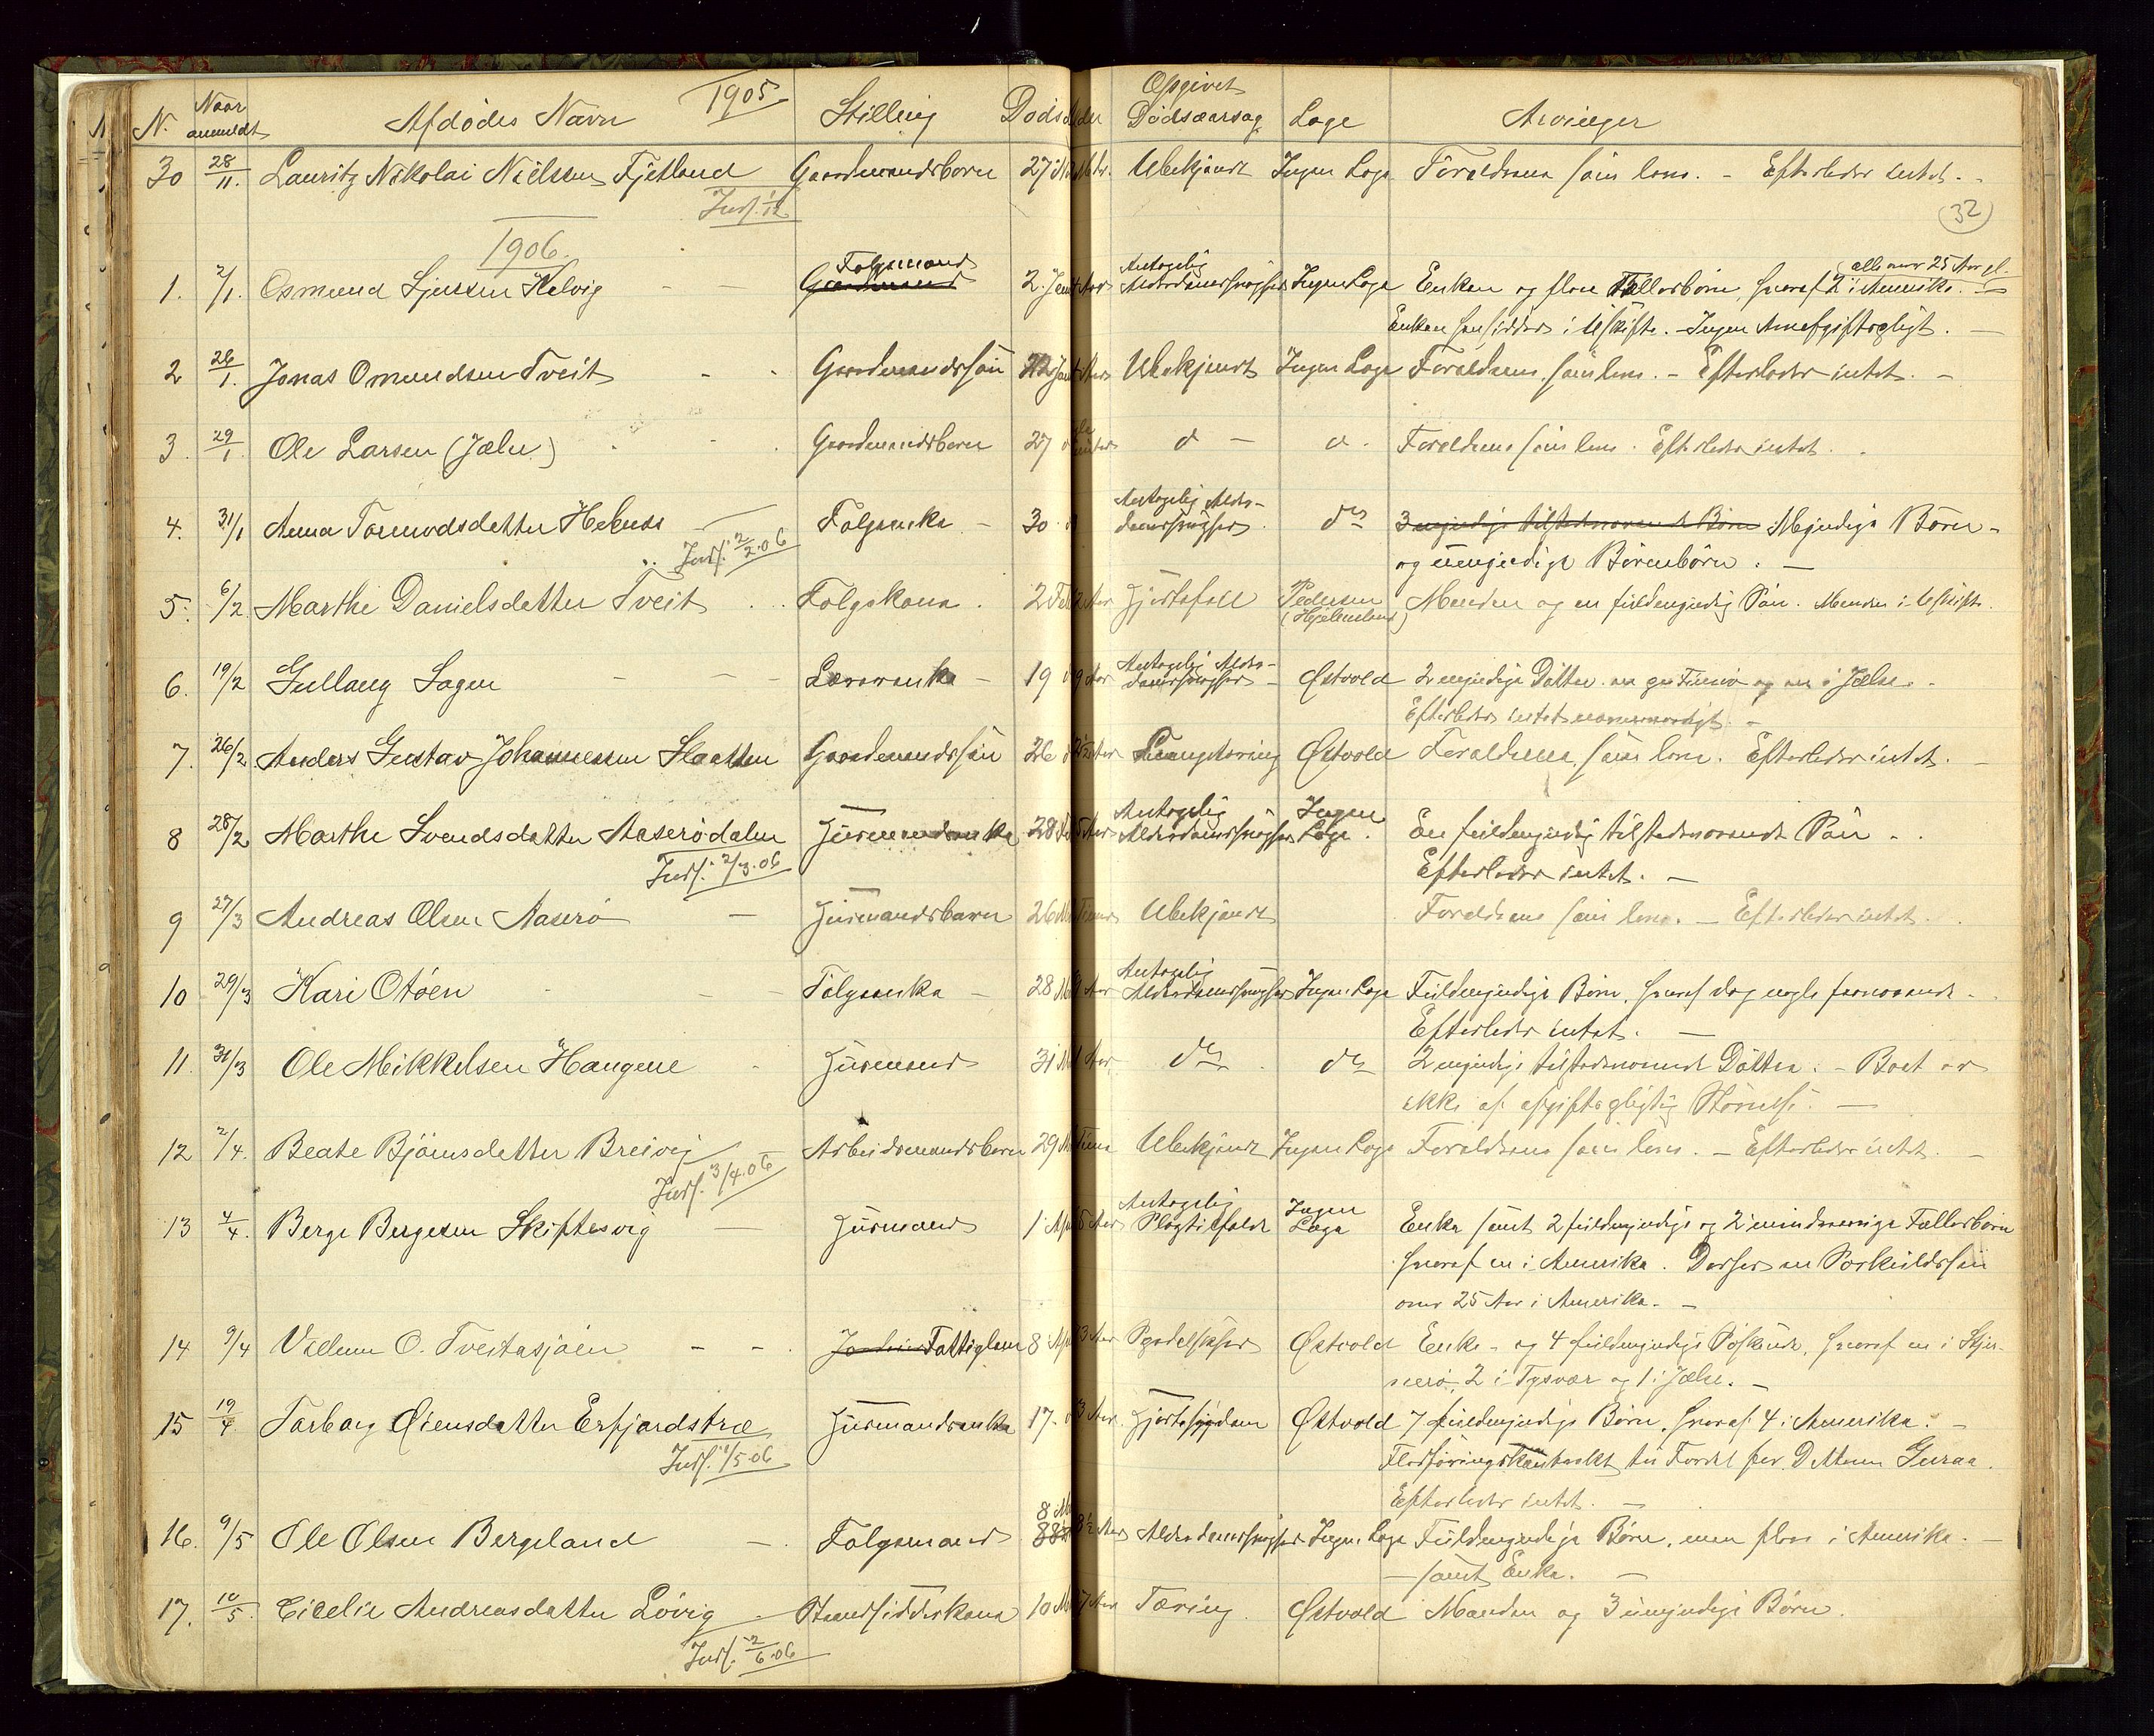 N. Naar anmeldt Afdødes Navn 1905 Stilling Døds Opgivet Dødsaarsag Læge Arvinger
30 28/11. Lauritz Nikolai Nielsen Fjetland Gaardmandsbarn 27 Ubekjendt Ingen Læge Forældrene som leve. - Efterlader intet. -
Inds. 1/12
(32)
1906.
1. 2/1. Osmund Sjursen Helvig Gaardmand Folgemand 2. Jan Antagelig Alderdomssvaghed Ingen Læge Enken og flere Fællesbørn, hvoraf 2 i Amerika. alle over 25 Aar gl.
Enken hensidder i Uskifte. - Ingen Arveafgiftspligt. -
2 26/1. Jonas Omundsen Tveit - - Gaardmandssøn Jan Ubekjendt Ingen Læge Forældrene som leve. - Efterlader intet. -
3. 29/1 Ole Larsen (Jælse) Gaardmandsbarn 27 d - d - Forældrene som leve. Efterlader intet.
4. 31/1 Anna Tormodsdatter Hebnes Folgeenke - 30 Antagelig Alderdomssvaghed do 3 myndige tilstedeværende Børn Myndige Børn -
Inds. 2/2.06 og umyndige Børnebørn. -
5. 6/2 Marthe Danielsdatter Tveit Folgekone 2 Feb Hjertefeil Pedersen (Hjelmeland) Manden og en fuldmyndig Søn. Manden i Uskifte.
6. 19/2 Gullaug Sagen - - - Lærerenke - 19 Antagelig Alderdomssvaghed - Østvold 2 myndige Døttre en paa Finnø og en i Jælse. -
Efterlader intet nævneværdigt. -
7. 26/2 Anders Gustav Johannessen Slaatten Gaardmandssøn 26 Lungetæring Østvold Forældrene som leve. Efterlader intet. -
8 28/2 Marthe Svendsdatter Aaserødalen Husmandsenke 28 Feb Antagelig Alderdomssvaghed Ingen Læge. En fuldmyndig tilstedeværende Søn. -
Inds. 2/3.06 Efterlader intet. -
9 27/3 Andreas Olsen Aaserø - Husmandsbarn 26 Ubekjendt Forældrene som leve. - Efterlader intet.
10 29/3 Kari Otøen - - Folgeenke - 28 Antagelig Alderdomssvaghed Ingen Læge Fuldmyndige Børn, hvoraf dog nogle fraværende -
Efterlader intet. -
11. 31/3 Ole Mikkelsen Haugene Husmand 31 do do 2 myndige tilstedeværende Døttre. - Boet er
ikke af afgiftspligtig Størrelse. -
12 2/4. Beate Bjørnsdatter Breivig Arbeidsmandsbarn 29 Ubekjendt Ingen Læge Forældrene som leve. - Efterlader intet. -
Inds. 3/4.06
13 4/4. Berge Bergesen Skiftesvig - Husmand 1 Apr Antagelig Slagtilfælde Ingen Læge Enke samt 2 fuldmyndige og 2 mindreaarige Fællesbørn
hvoraf en i Amerika. Derhos en Særkuldssøn
over 25 Aar i Amerika. -
14 9/4 Villum O. Tveitasjøen - - Fattiglem 8 Apr Østvold Enke - og 4 fuldmyndige Søskende, hvoraf en i Stjernerø, 2 i Tysvær og 1 i Jælse. -
15 19/4 Torborg Eiensdatter Erfjordstræ Husmandsenke 17. Hjertesygdom Østvold 7 fuldmyndige Børn, hvoraf 4 i Amerika. -
Inds. 1/5.06 Fledføringskontrakt til Fordel for Datteren Guraa.
Efterlader intet. -
16. 9/5 Ole Olsen Bergeland - Folgemand 8 Alderdomssvaghed Ingen Læge Fuldmyndige Børn, men flere i Amerika. -
- samt Enke. -
17. 10/5. Cicelie Andreasdatter Løvig - Strandsidderkone 10 Tæring Østvold Manden og 3 umyndige Børn.
Inds. 2/6.06